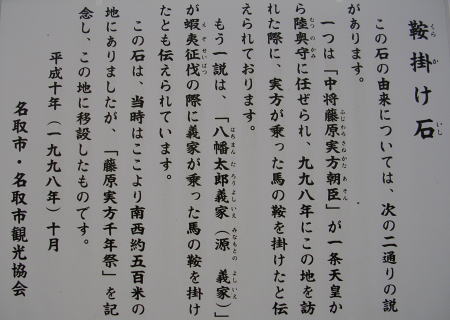 鞍掛け石
この石の由来については、次の二通りの説
があります。
一つは「中将藤原実方朝臣」が一条天皇か
ら陸奥守に任ぜられ、九九八年にこの地を訪
れた際に、実方が乗った馬の鞍を掛けたと伝
えられております。
もう一説は、「八幡太郎義家（源　義家）」
が蝦夷征伐の際に義家が乗った馬の鞍を掛け
たとも伝えられています。
この石は、当時はここより南西約五百米の
地にありましたが、「藤原実方千年祭」を記
念し、この地に移設したものです。
平成十年（一九九八年）十月
名取市・名取市観光協会